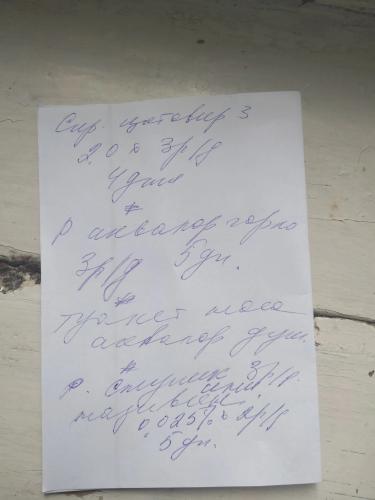 Сир. цитовир 3
2.0 x 3р/д
4 дня
#
Р аквалор горло
3р/д 5дн.
#
туалет носа
аквалор душ.
#
Р. 3р/д.
називин
0.025% x 2р/д
5дн.